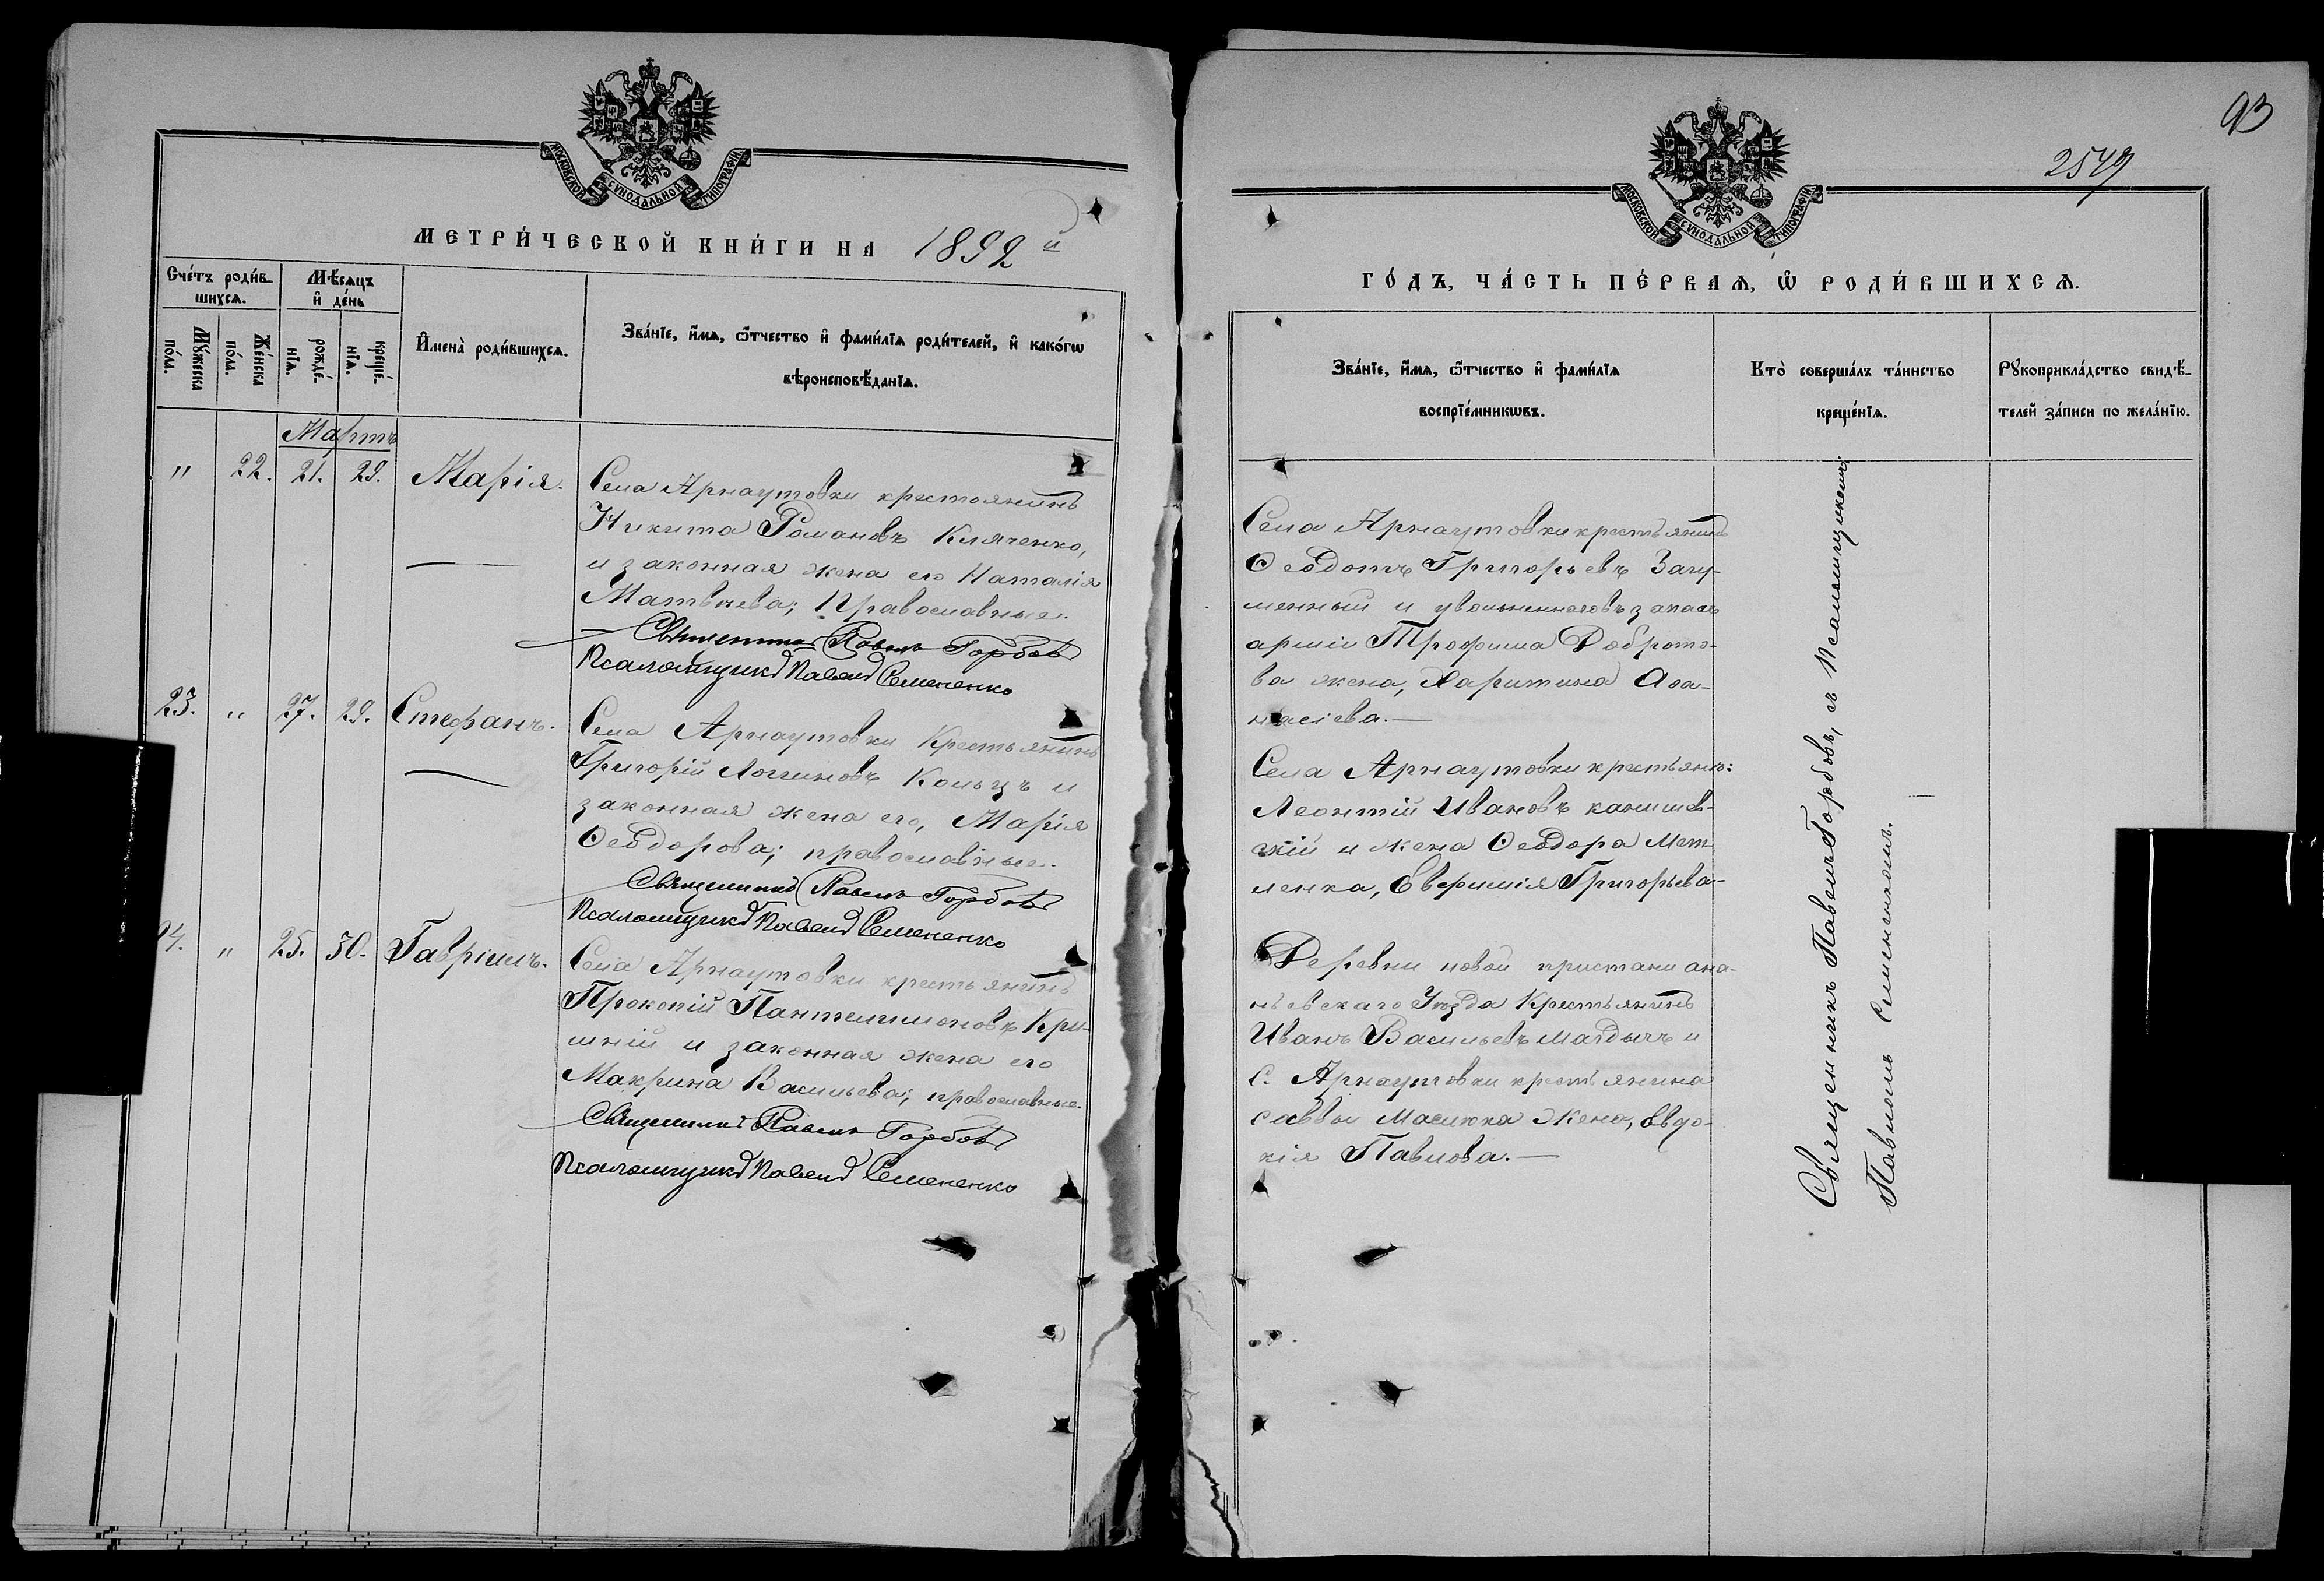 МОСКОВСКОЙ СѴНОДАЛЬНОЙ ТИПОГРАФІИ
МЕТРИ́ЧЕСКОЙ КНИ́ГИ НА 1892 й
Сче́тъ роди́в-
шихсѧ.
Мѣ́сѧцъ
и҆ де́нь
Мꙋ́жеска
по́ла.
Же́нска
по́ла.
рожде́-
нїѧ.
креще́-
нїѧ.
И҆мена̀ роди́вшихсѧ.
Зва́нїе, и҆́мѧ, ѻ҆́тчество и҆ фами́лїѧ роди́телей, и҆ како́гѡ
вѣроисповѣ́данїѧ.
Мартъ
" 22. 21. 29. Марія.
Села Арнаутовки крестьянинъ
Никита Романовъ Кляченко,
и законная жена его Наталія
Матвѣева; Православные.
Священникъ Павелъ Горбовъ
Псаломщикъ Павелъ Семененко
23. " 27. 29. Стефанъ.
Села Арнаутовки Крестьянинъ
Григорій Логиновъ Кольцъ и
законная жена его, Марія
Ѳеодорова; православные.
Священникъ Павелъ Горбовъ
Псаломщикъ Павелъ Семененко
24. " 25. 30. Гавріилъ.
Села Арнаутовки крестьянинъ
Прокопій Пантелимоновъ Кри-
шній и законная жена его
Макрина Васильева; православные.
Священникъ Павелъ Горбовъ
Псаломщикъ Павелъ Семененко
93
2549
МОСКОВСКОЙ СѴНОДАЛЬНОЙ ТИПОГРАФІИ
ГО́ДЪ, ЧА́СТЬ ПЕ́РВАѦ, Ѡ҆ РОДИ́ВШИХСѦ.
Зва́нїе, и҆́мѧ, ѻ҆́тчество и҆ фами́лїѧ
воспрїе́мникѡвъ.
Кто̀ соверша́лъ та́инство
креще́нїѧ.
Рꙋкоприкла́дство свидѣ́-
телей за́писи по жела́нїю.
Села Арнаутовки крестьянинъ
Ѳеодотъ Григорьевъ Загу-
менный и уволеннаго въ запасъ
арміи Трофима Доброто-
ва жена, Харитина Аѳа-
насіева.—
Села Арнаутовки крестьяне:
Леонтій Ивановъ
и жена Ѳеодора Мет-
ленка, Евфимія Григорьева—
Деревни новой пристани ана-
ньевскаго Уѣзда Крестьянинъ
Иванъ Васильевъ Магдычъ и
с. Арнаутовки крестьянина
саввы Масюка Жена, Евдо-
кія Павлова.—
Священникъ Павелъ Горбовъ, съ Псаломщикомъ
Павломъ Семененкомъ.